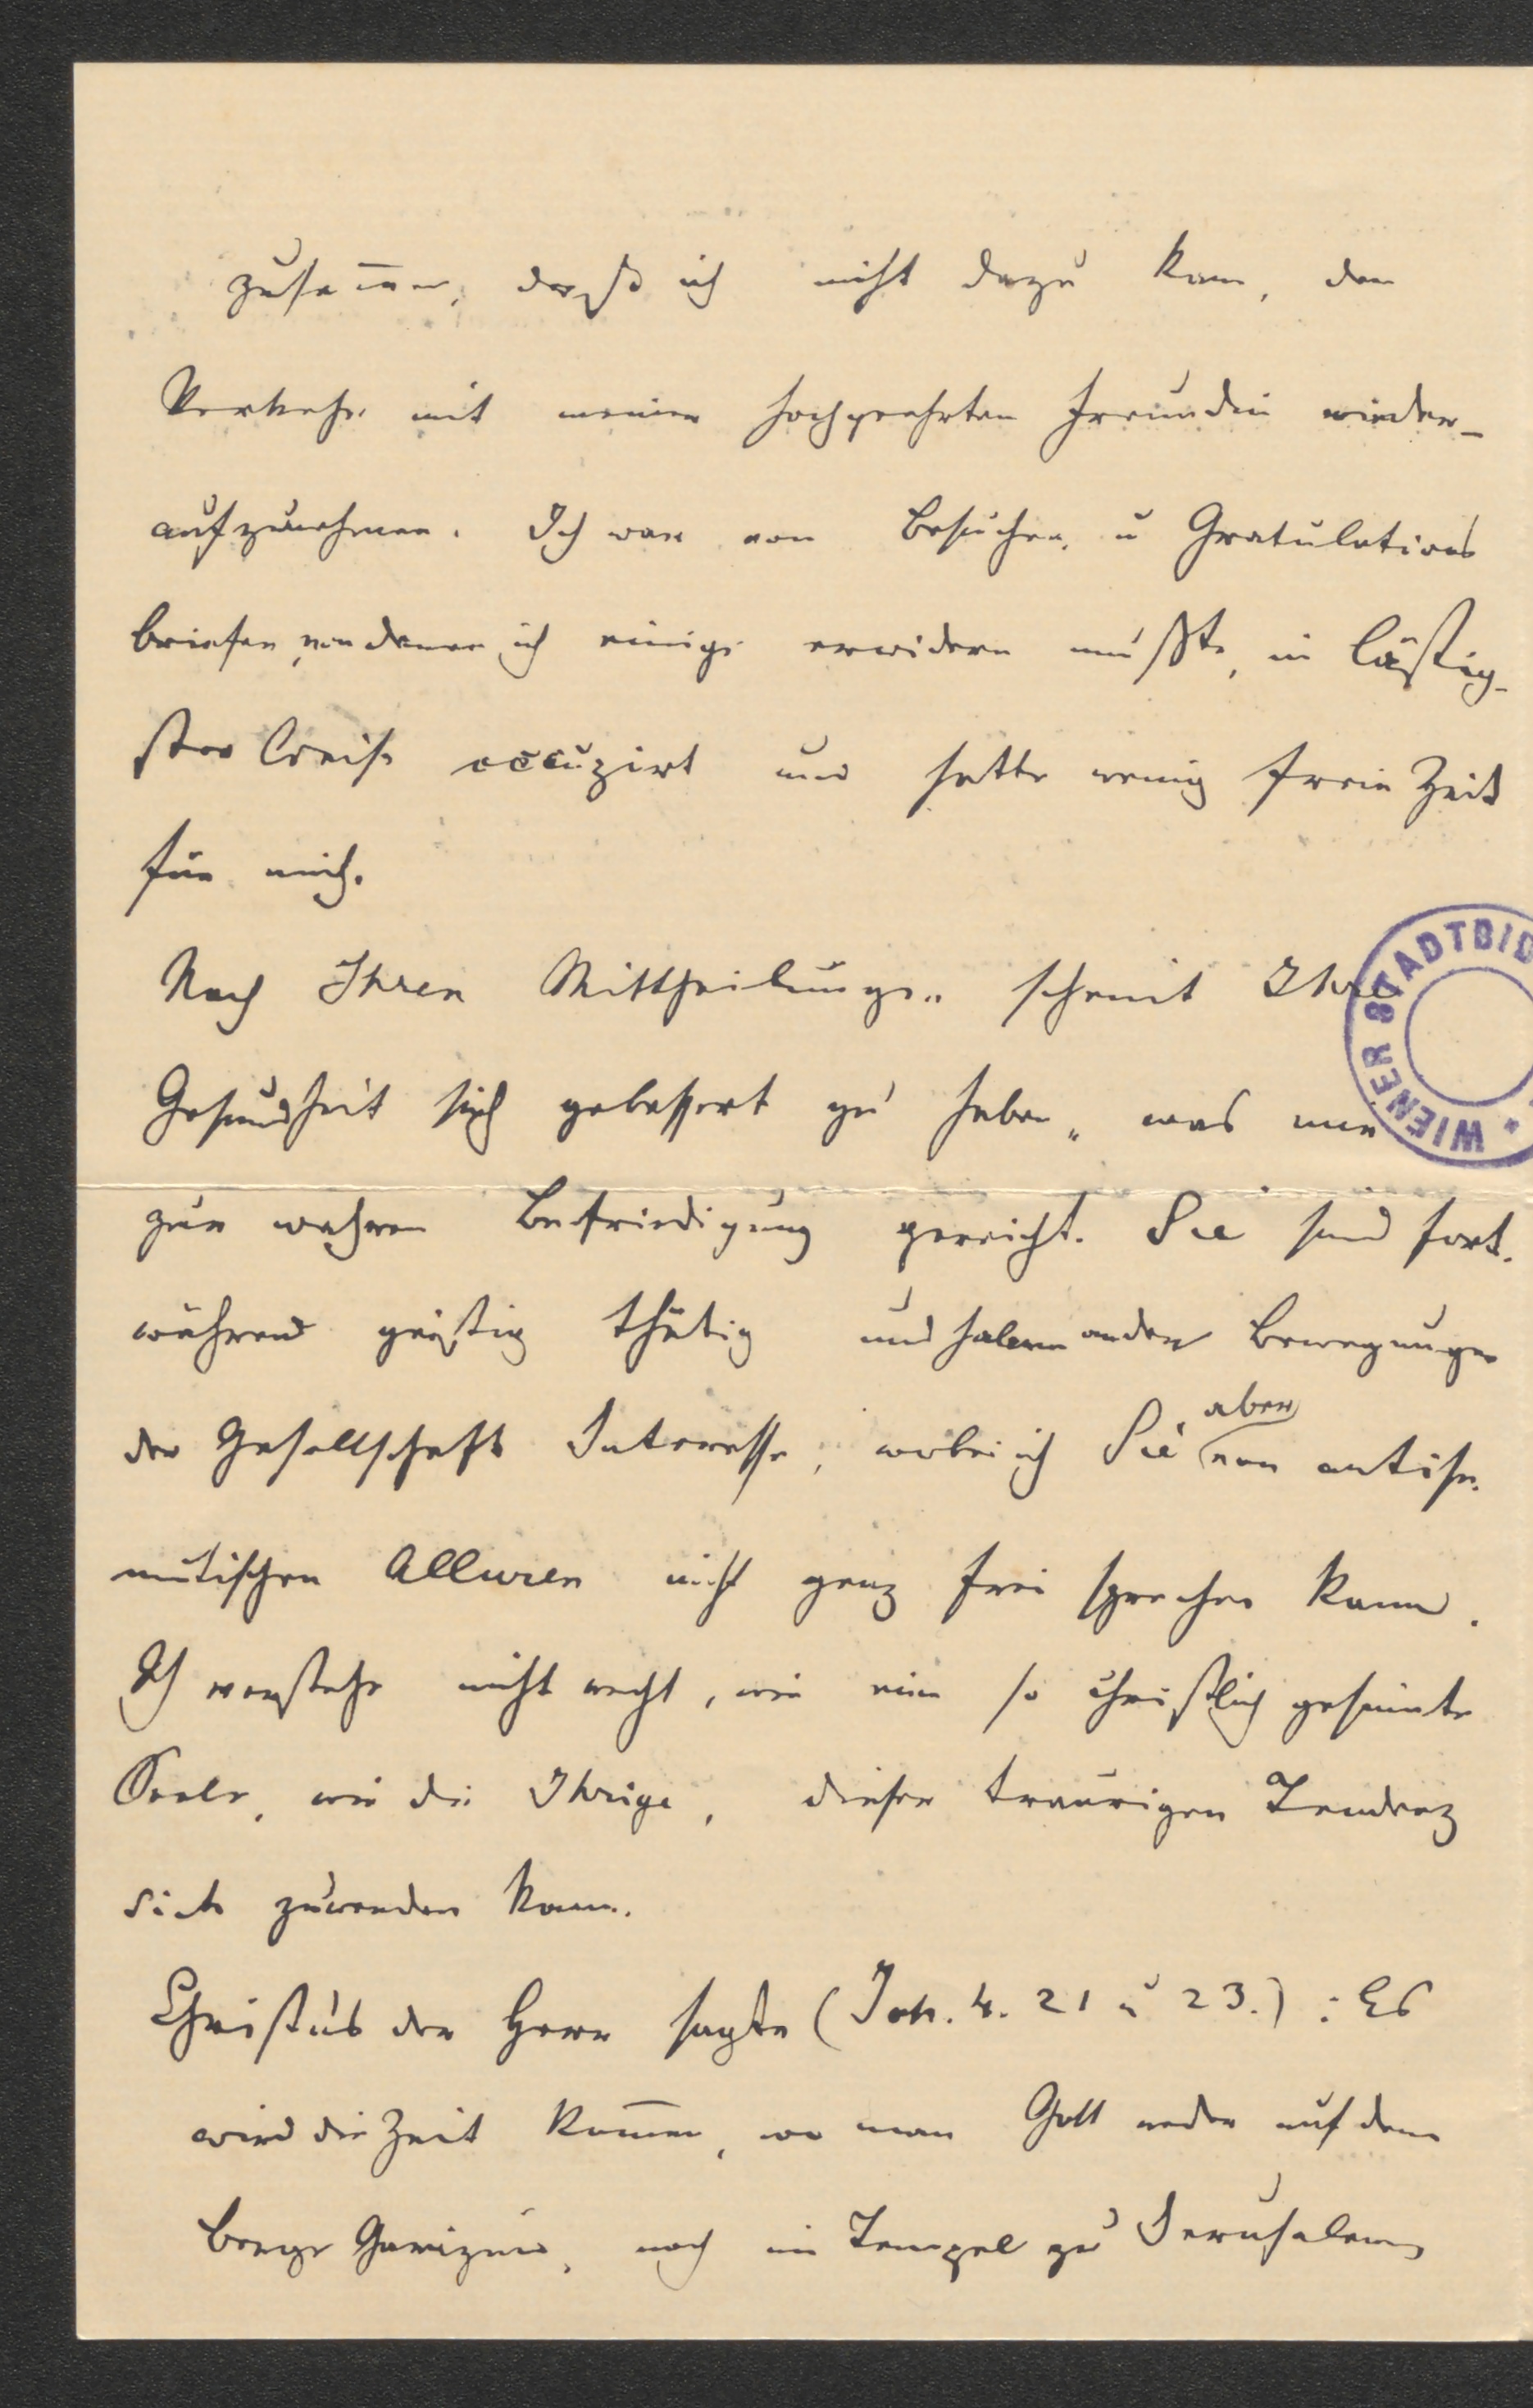 zusam̄en, daß ich nicht dazu kam, den
Verkehr mit meiner hochgeehrten Freundin wieder-
aufzunehmen. Ich war von Besuchen, u Gratulations
briefen, von denen ich einige erwidern mußte, in lästig-
ster Weise occupirt und hatte wenig freie Zeit
für mich.
Nach Ihren Mittheilungen scheint Ihre
Gesundheit sich gebessert zu haben, was mir
zur wahren Befriedigung gereicht. Sie sind fort-
während geistig thätig und haben an den Bewegungen
der Gesellschaft Interesse, wobei ich Sie aber von antise-
mitischen Alluren nicht ganz frei sprechen kann.
Ich verstehe nicht recht, wie eine so christlich gesinnte
Seele, wie die Ihrige, dieser traurigen Tendenz
sich zuwenden kann.
Christus der Herr sagte (Joh. 4. 21 u 23.) : Es
wird die Zeit kom̄en, wo man Gott weder auf dem
Berge Garizim, noch im Tempel zu Jerusalem
WIENER STADTBI